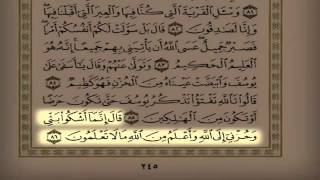 ٨١ وَسْـَٔلِ ٱلْقَرْيَةَ ٱلَّتِى كُنَّا فِيهَا وَٱلْعِيرَ ٱلَّتِىٓ أَقْبَلْنَا فِيهَا
وَإِنَّا لَصَٰدِقُونَ ٨٢ قَالَ بَلْ سَوَّلَتْ لَكُمْ أَنفُسُكُمْ أَمْرًا
فَصَبْرٌ جَمِيلٌ عَسَى ٱللَّهُ أَن يَأْتِيَنِى بِهِمْ جَمِيعًا إِنَّهُۥ هُوَ
ٱلْعَلِيمُ ٱلْحَكِيمُ ٨٣ وَتَوَلَّىٰ عَنْهُمْ وَقَالَ يَٰٓأَسَفَىٰ عَلَىٰ
يُوسُفَ وَٱبْيَضَّتْ عَيْنَاهُ مِنَ ٱلْحُزْنِ فَهُوَ كَظِيمٌ ٨٤
قَالُوا۟ تَٱللَّهِ تَفْتَؤُا۟ تَذْكُرُ يُوسُفَ حَتَّىٰ تَكُونَ حَرَضًا
أَوْ تَكُونَ مِنَ ٱلْهَٰلِكِينَ ٨٥ قَالَ إِنَّمَآ أَشْكُوا۟ بَثِّى
وَحُزْنِىٓ إِلَى ٱللَّهِ وَأَعْلَمُ مِنَ ٱللَّهِ مَا لَا تَعْلَمُونَ ٨٦
٢٤٥